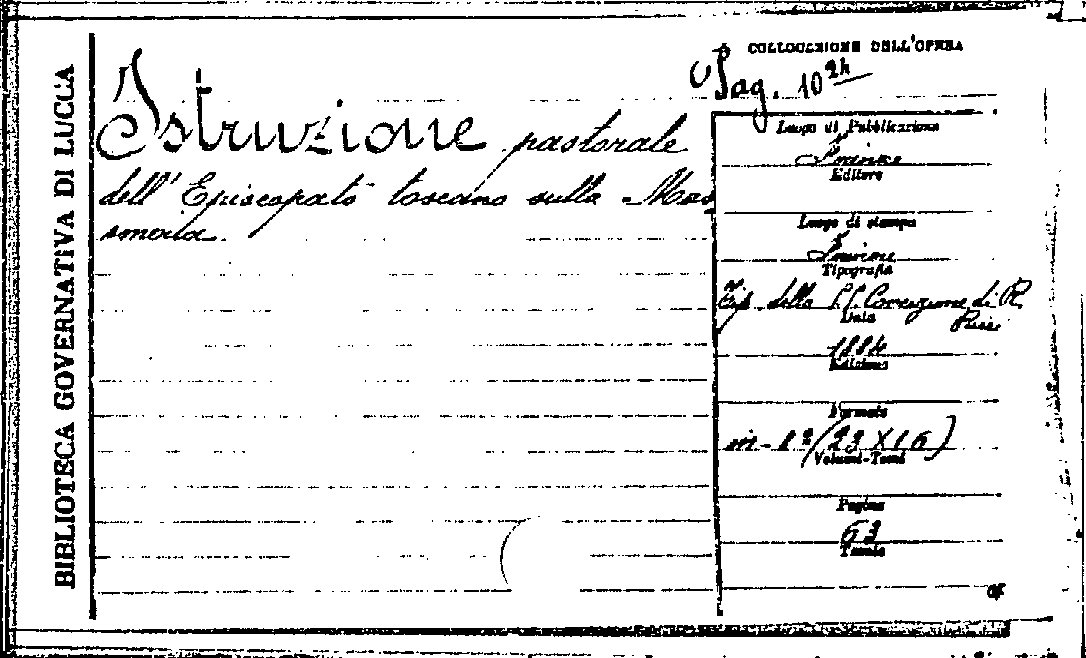 BIBLIOTECA GOVERNATIVA DI LUCCA
Istruzione pastorale
dell' Episcopato toscano sulla Mas
soneria.
COLLOCAZIONE DELL'OPERA
Pag. 10
Luogo di Pubblicazione
Firenze
Editore
Luogo di stampa
Firenze
Tipografia
Tip. della SS. Concezione di R.
Ricci
Data
1884
Edizione
Formato
in-8º (23 X 16)
Volumi-Tomi
Pagine
63
Tavole